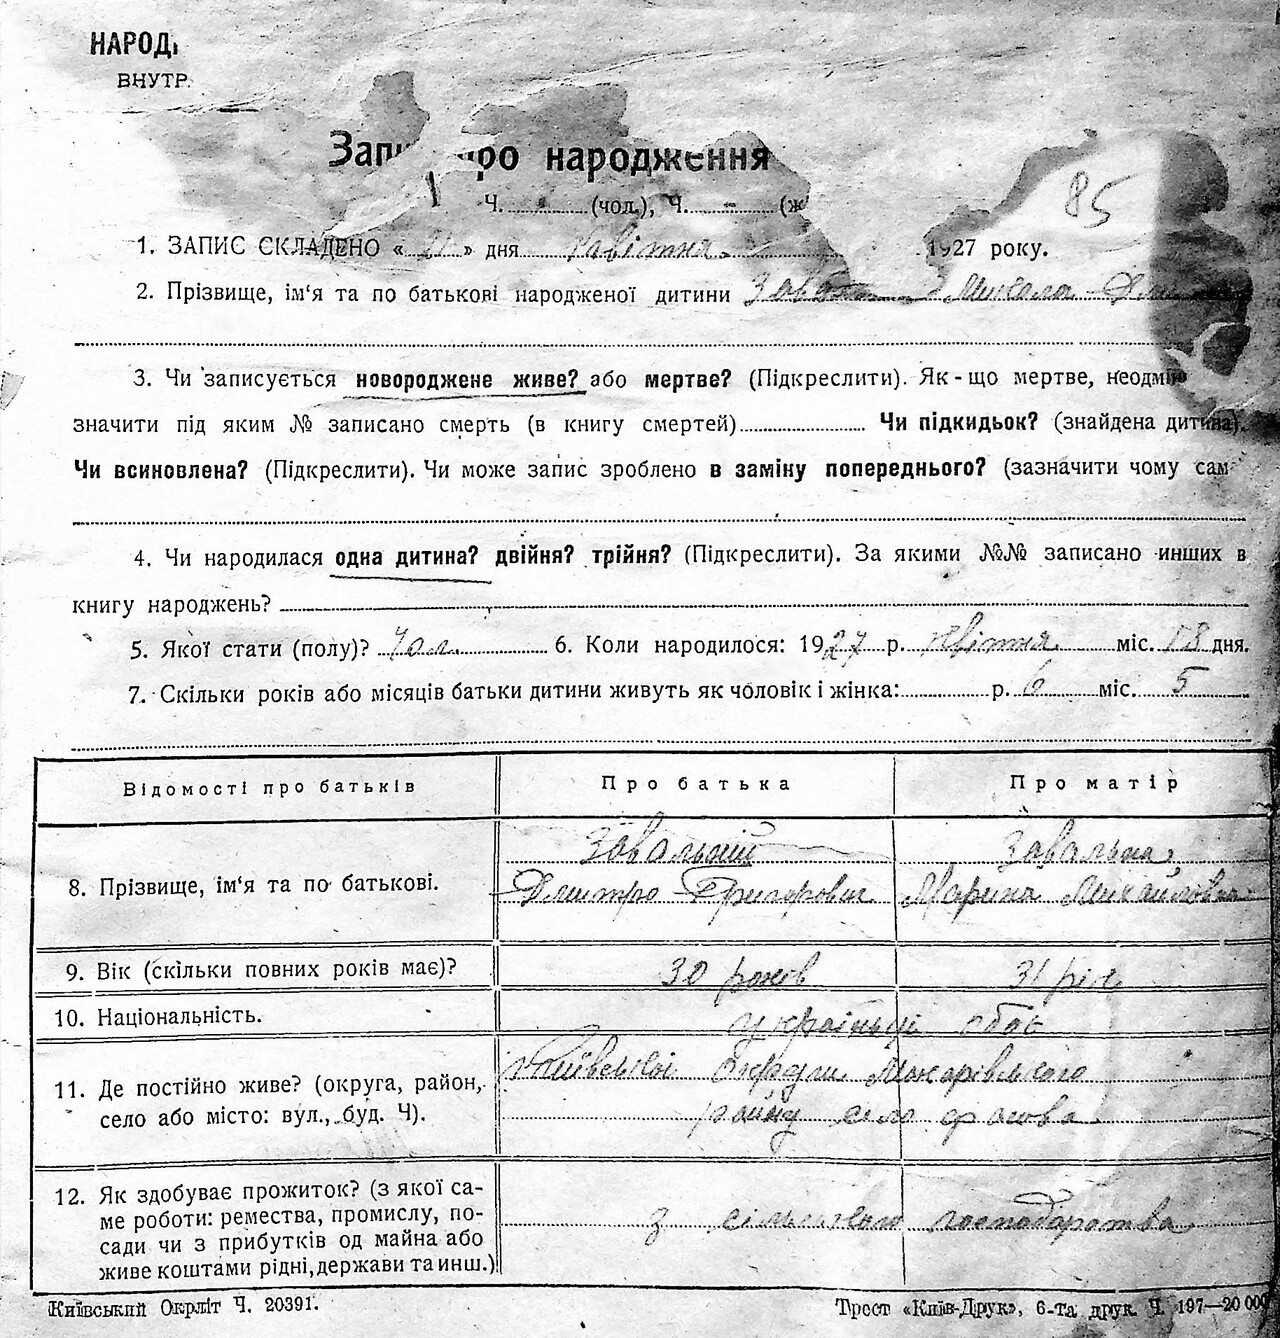 НАРОД
ВНУТР.
85
Запи про народження
Ч. (чол.), Ч. - (ж
1. ЗАПИС СКЛАДЕНО « 21 » дня квітня 1927 року.
2. Прізвище, ім‘я та по батькові народженої дитини Микола
3. Чи записується новороджене живе? або мертве? (Підкреслити). Як-що мертве, неодмін
значити під яким № записано смерть (в книгу смертей) Чи підкидьок? (знайдена дитина).
Чи всиновлена? (Підкреслити). Чи може запис зроблено в заміну попереднього? (зазначити чому сам
4. Чи народилася одна дитина? двійня? трійня? (Підкреслити). За якими №№ записано инших в
книгу народжень?
5. Якої стати (полу)? Чол. 6. Коли народилося: 1927 р. квітня міс. 18 дня.
7. Скільки років або місяців батьки дитини живуть як чоловік і жінка: р. 6 міс. 5
Відомості про батьків Про батька Про матір
8. Прізвище, ім‘я та по батькові. Завальний Завальна
Дмитро Григорович Марина Михайловна
9. Вік (скільки повних років має)? 30 років 31 рік
10. Національність. українці обоє
11. Де постійно живе? (округа, район, село або місто: вул., буд. Ч). Київської округи Макарівського
району село Фасова
12. Як здобуває прожиток? (з якої са-
ме роботи: ремества, промислу, по-
сади чи з прибутків од майна або
живе коштами рідні, держави та инш.) з сільського господарства
Київський Окрліт Ч. 20391. Трест «Київ-Друк», 6-та друк. Ч. 197—20 000